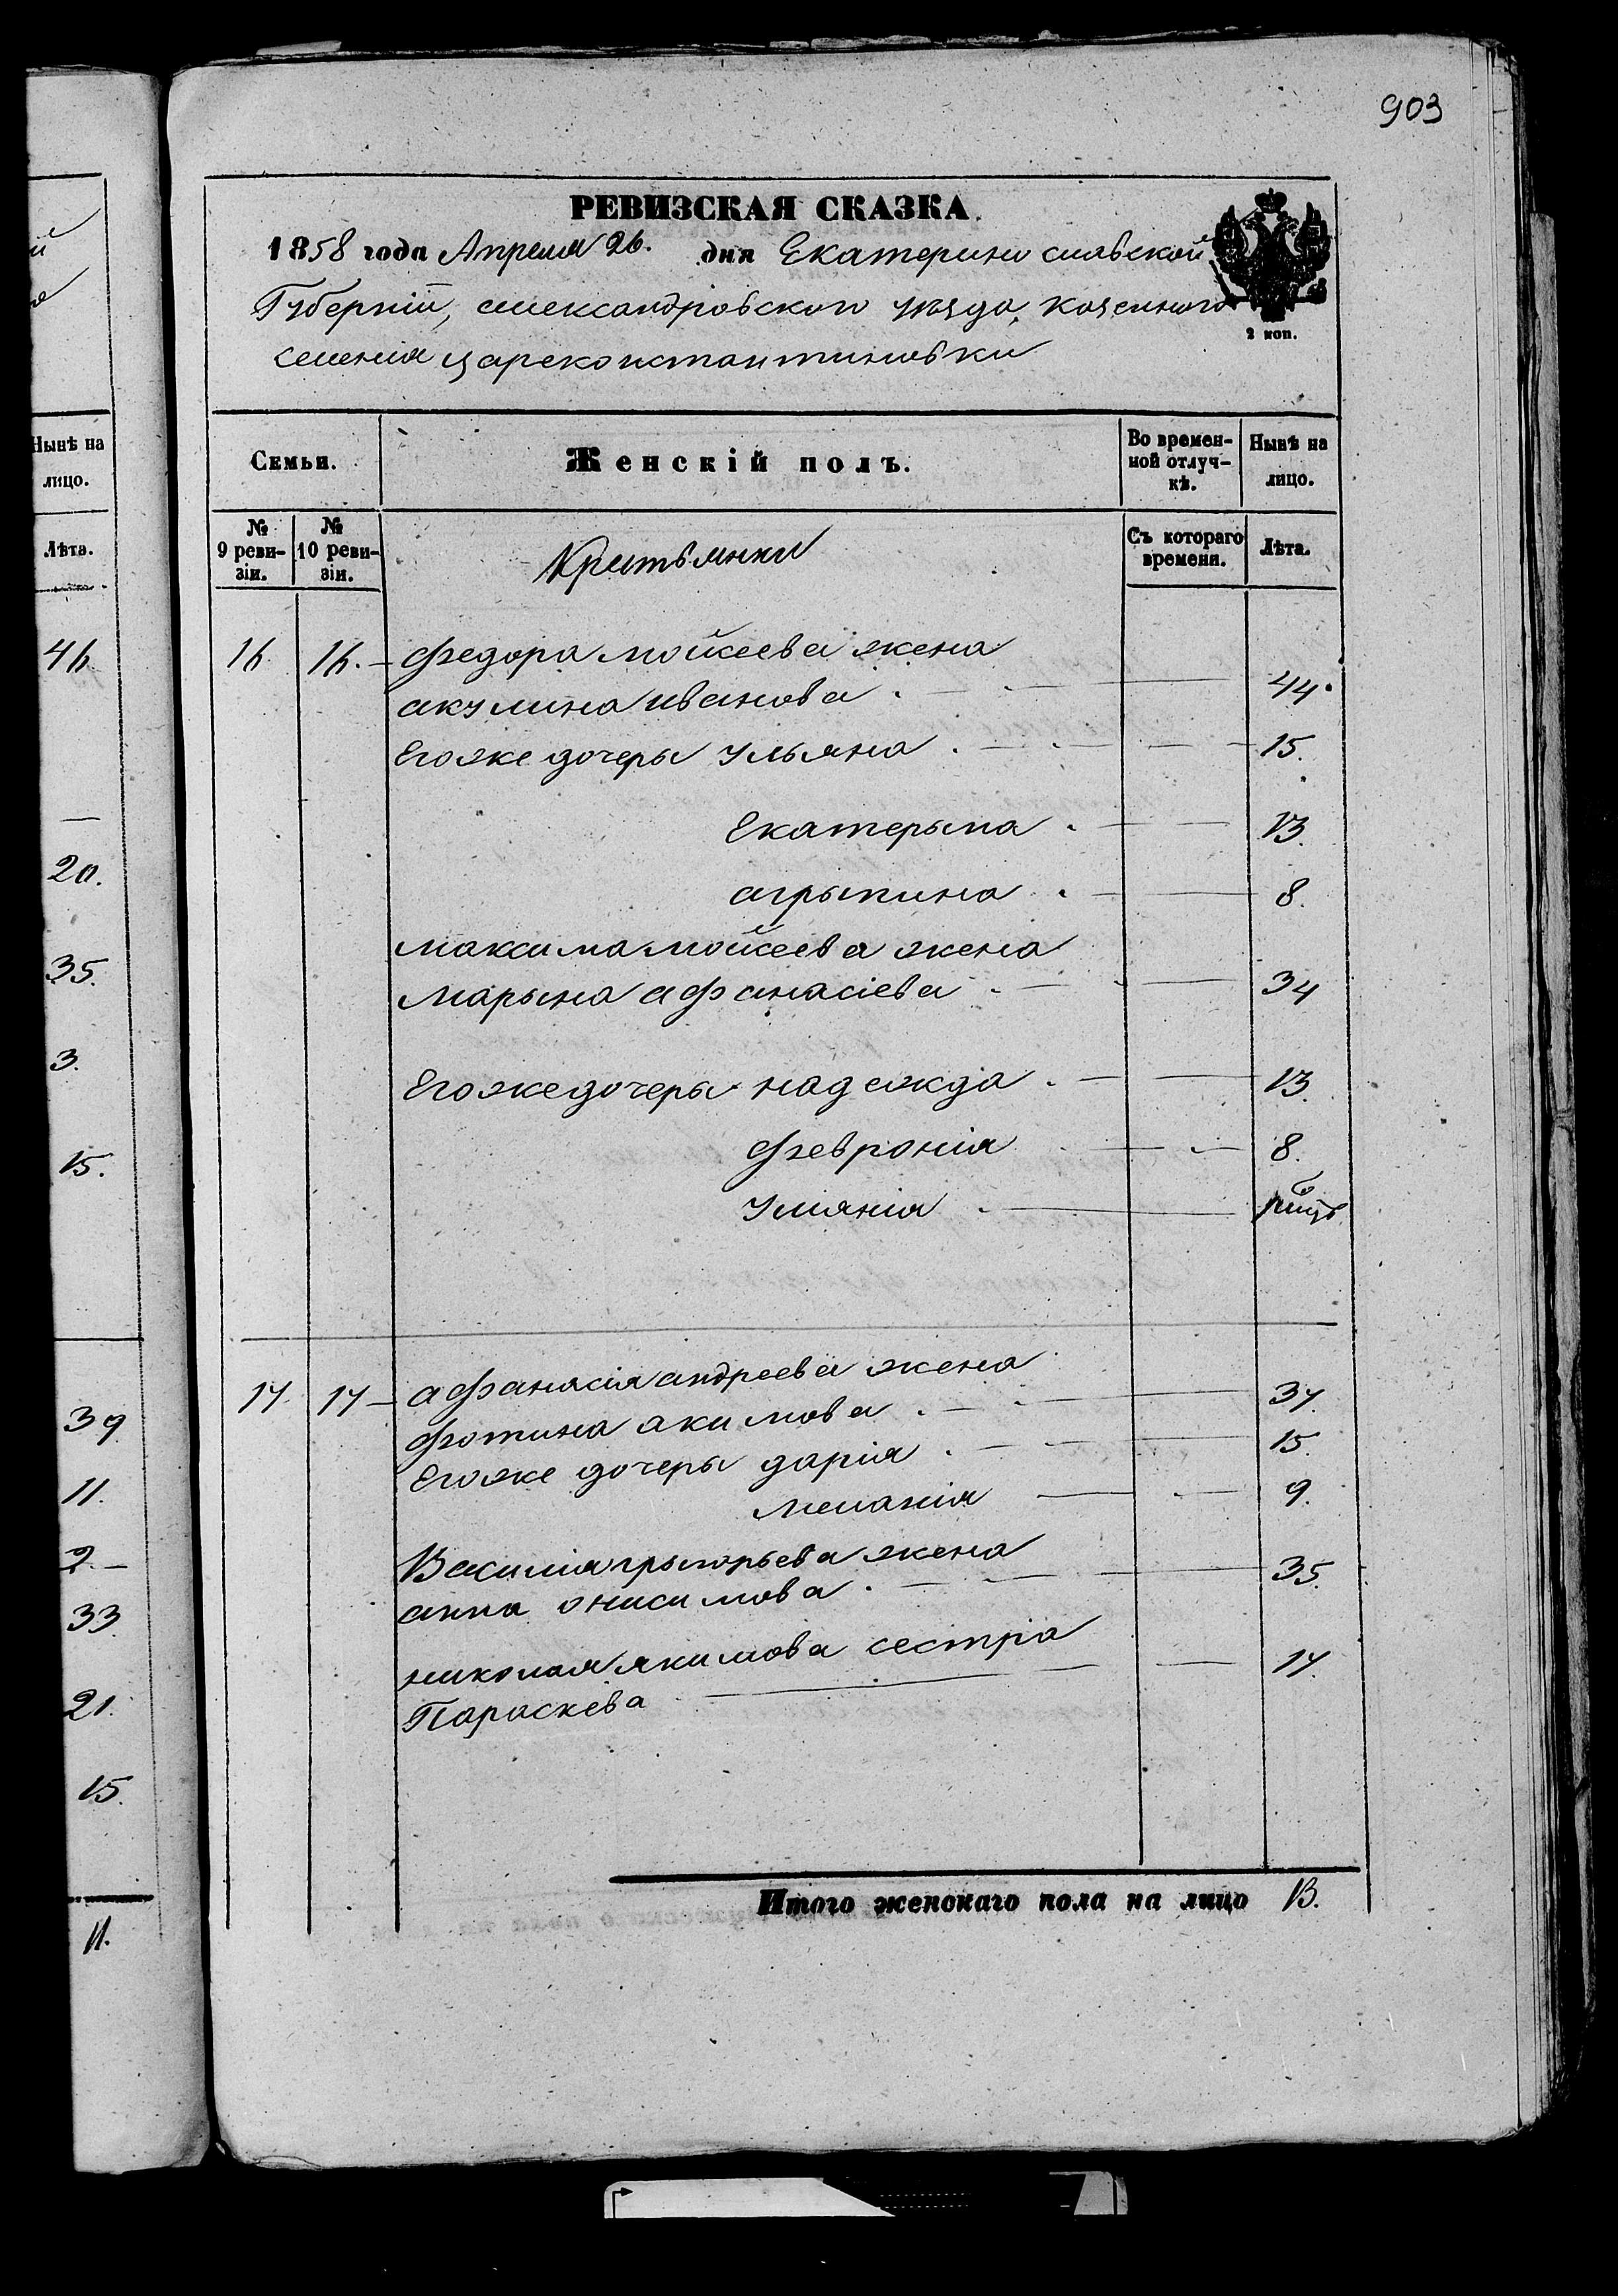 903
РЕВИЗСКАЯ СКАЗКА.
1858 года Апреля 26. дня Екатеринославской
Губерніи, александровского уѣзда, козенного
селенія цареконстантиновки
2 коп.
Семьи.
Женскій полъ.
Во времен-
ной отлуч-
кѣ.
Нынѣ на
лицо.
№
9 реви-
зіи.
№
10 реви-
зіи.
Съ котораго
времени.
Лѣта.
16 16. Федора мойсеева жена
акулина иванова 44.
Егоже дочеры ульяна 15.
Екатерына 13.
агрыпина 8.
максима мойсеева жена
Марына афанасіева 34
Егоже дочеры надежда 13.
Февронія 8.
уліянія
17. 17 афанасія андреева жена
фотина акимова 37.
Егоже дочеры дарія 15.
меланія 9.
Василія грыгорьева жена
анна онисимова 35.
николая якимова сестра
Параскева 17.
Итого женскаго пола на лицо 13.
Нынѣ на
лицо.
Лѣта.
46
20.
35.
3.
15.
39
11.
2
33
21.
15.
11.